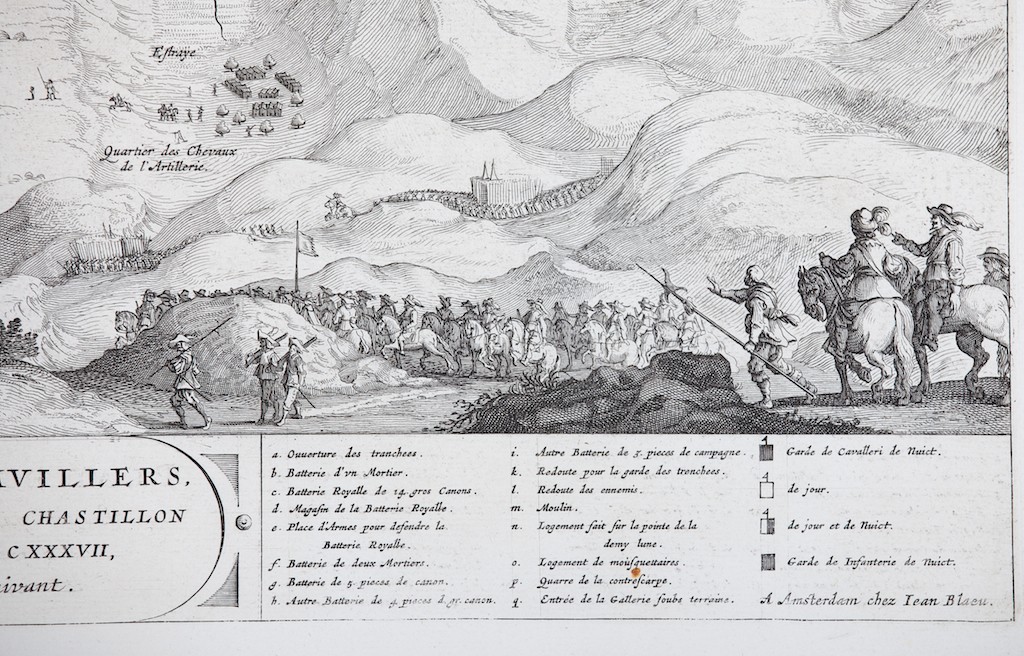 Estraye
Quartier des Chevaux
de l'Artillerie.
VILLERS,
CHASTILLON
CXXXVII,
ivant.
a. Ouverture des tranchees.
b. Batterie d'vn Mortier.
c. Batterie Royalle de 14. gros Canons.
d. Magasin de la Batterie Royalle.
e. Place d'Armes pour defendre la
Batterie Royalle.
f. Batterie de deux Mortiers.
g. Batterie de 5. pieces de canon.
h. Autre Batterie de 4. pieces d. gr. canon.
i. Autre Batterie de 5. pieces de campagne.
k. Redoute pour la garde des trenchees.
l. Redoute des ennemis.
m. Moulin.
n. Logement fait sur la pointe de la
demy lune.
o. Logement de mousquettaires.
p. Quarre de la contrescarpe.
q. Entrée de la Gallerie soubs terraine.
Garde de Cavalleri de Nuict.
de jour.
de jour et de Nuict.
Garde de Infanterie de Nuict.
A Amsterdam chez Iean Blaeu.